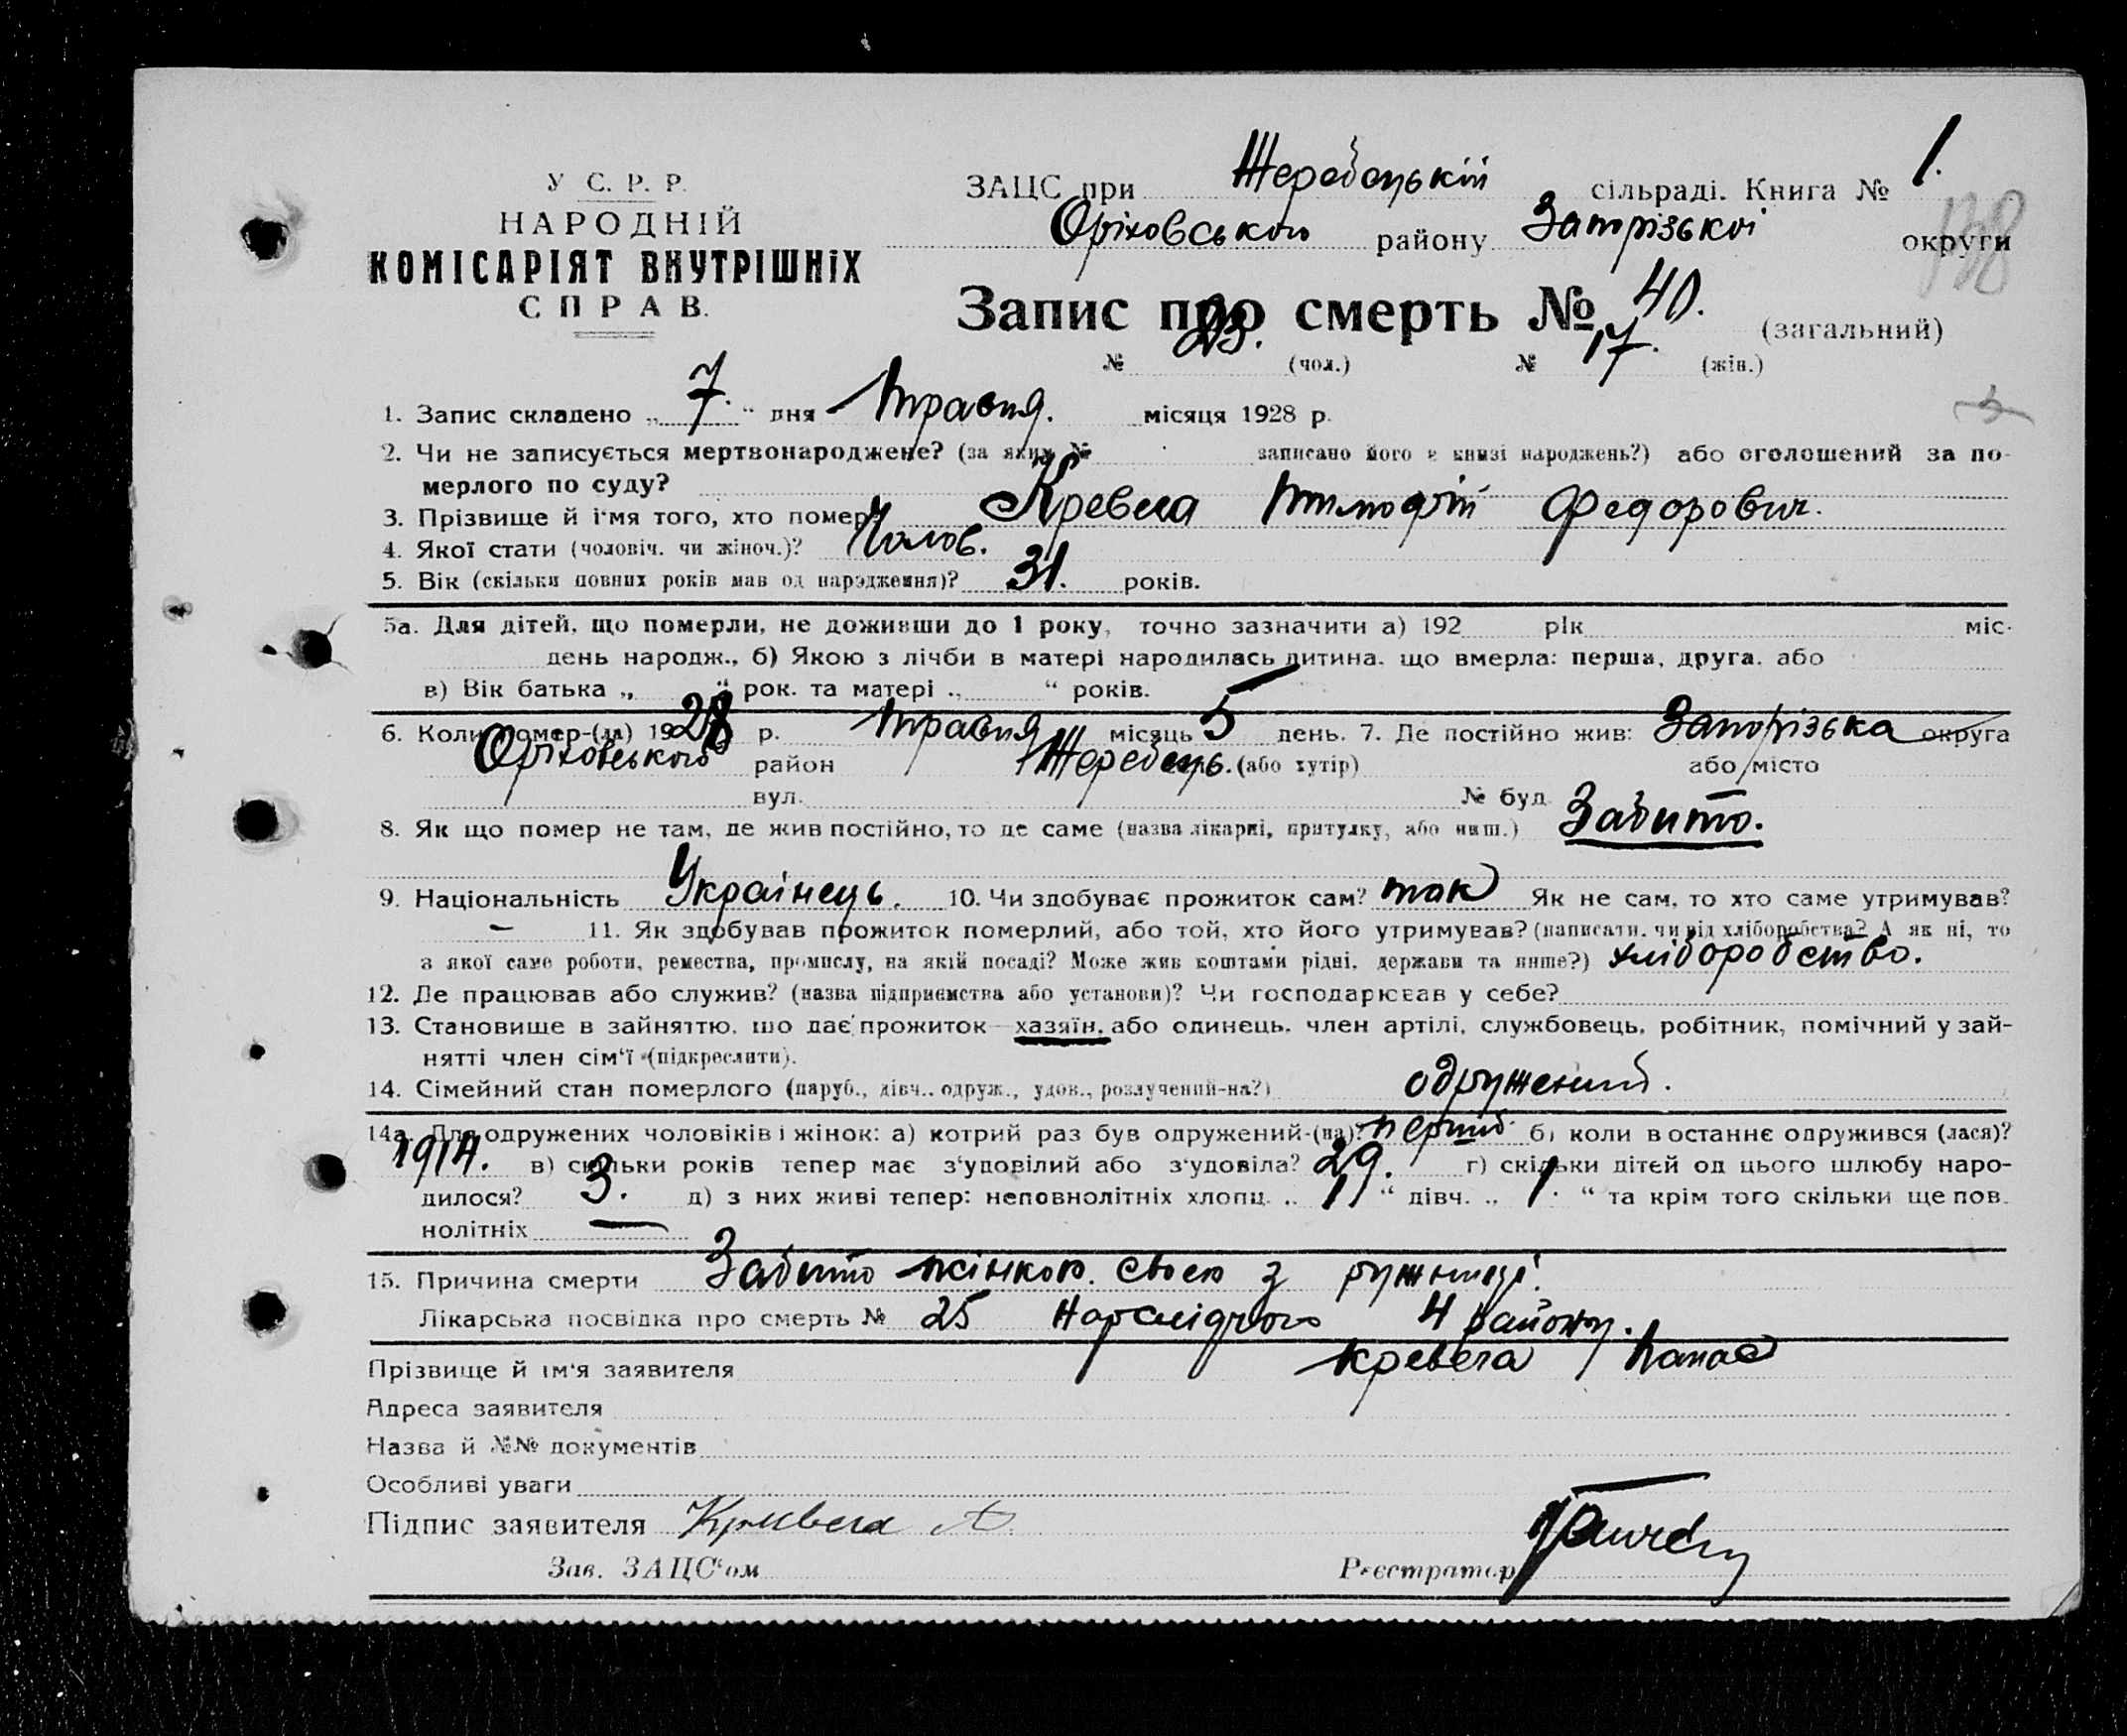 У С. Р. Р.
НАРОДНІЙ
КОМІСАРІЯТ ВНУТРІШНІХ
СПРАВ.
ЗАЦС при Жеребецькій сільраді. Книга № 1.
Оріховського району Запорізької округи
138
Запис про смерть № 40. (загальний)
№ 23. (чол.) № 17. (жін.)
1. Запис складено „ 7. “ дня Травня. місяця 1928 р.
2. Чи не записується мертвонароджене? (за яким № записано його в книзі народжень?) або оголошений за по-
мерлого по суду?
3. Прізвище й ім'я того, хто помер? Кревега Тимофій Федорович.
4. Якої стати (чоловіч. чи жіноч.)? Чолов.
5. Вік (скільки повних років мав од народження)? 31. років.
5а. Для дітей, що померли, не доживши до 1 року, точно зазначити а) 192 рік міс.
день народж., б) Якою з лічби в матері народилась дитина, що вмерла: перша, друга, або
в) Вік батька „ “ рок. та матері „ “ років.
6. Коли помер-(ла) 1928 р. Травня місяць 5 день. 7. Де постійно жив: Запорізька округа
Оріховського район Жеребець. (або хутір) або місто
вул. № буд.
8. Як що помер не там, де жив постійно, то де саме (назва лікарні, притулку, або инш.) Забито.
9. Національність Українець. 10. Чи здобуває прожиток сам? так Як не сам, то хто саме утримував?
— 11. Як здобував прожиток померлий, або той, хто його утримував? (написати, чи від хліборобства? А як ні, то
з якої саме роботи, ремества, промислу, на якій посаді? Може жив коштами рідні, держави та инше?) хліборобство.
12. Де працював або служив? (назва підприємства або установи)? Чи господарював у себе?
13. Становище в зайняттю, що дає прожиток—хазяїн, або одинець, член артілі, службовець, робітник, помічний у зай-
нятті член сім'ї (підкреслити).
14. Сімейний стан померлого (паруб., дівч., одруж., удов., розлучений-на?) одружений.
14а. Для одружених чоловіків і жінок: а) котрий раз був одружений-(на)? перший б) коли востаннє одружився (лася)?
1914. в) скільки років тепер має з'удовілий або з'удовіла? 29. г) скільки дітей од цього шлюбу наро-
дилося? 3. д) з них живі тепер: неповнолітніх хлопц. „ 1 “ дівч. „ 1. “ та крім того скільки ще пов-
нолітніх —
15. Причина смерти Забито жінкою. своєю з ружниці.
Лікарська посвідка про смерть № 25 Нарслідчого 4 району.
Прізвище й ім'я заявителя Кревега Панас
Адреса заявителя
Назва й №№ документів
Особливі уваги
Підпис заявителя Кривега А.
Зав. ЗАЦС'ом Реєстратор